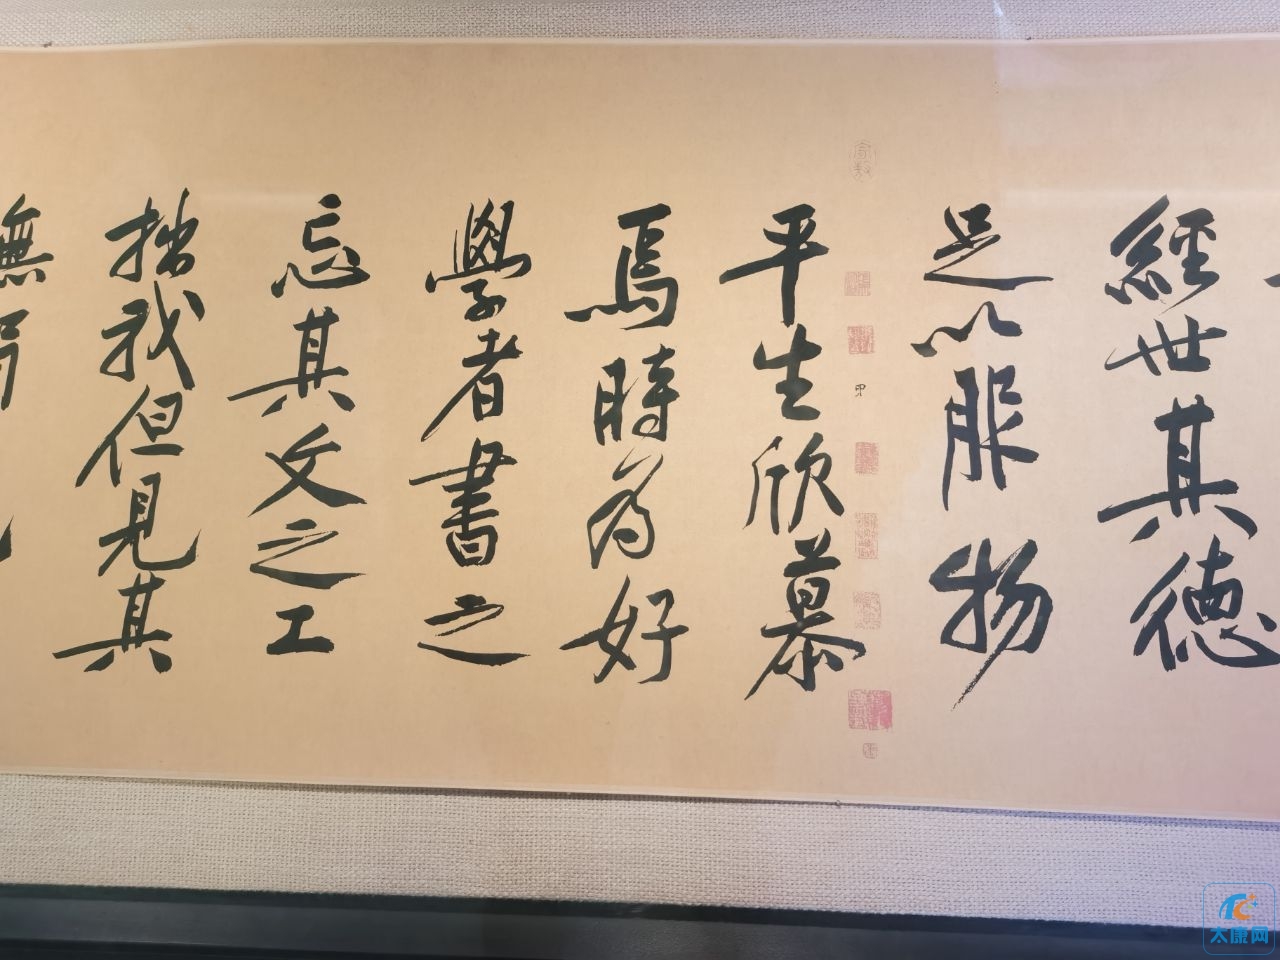 經世其德
足以服物
平生欣慕
焉時為好
學者書之
忘其文之工
拙我但見其
無
甲
太康网